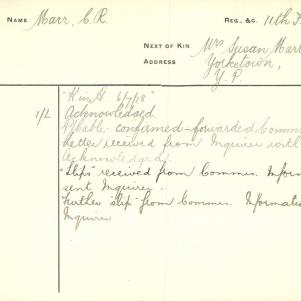 NAME Marr, C. R. REG., &C. 11th F
NEXT OF KIN Mrs Susan Marr
ADDRESS Yorketown,
Y. P.
"K in A 6/7/18"
1/L Acknowledged
confirmed - forwarded Commr
Letter received from Inquirer with
Acknowledged.
"Slip" received from Commr. Inform
sent Inquirer.
Further "slip" from Commr. Informat
Inquirer